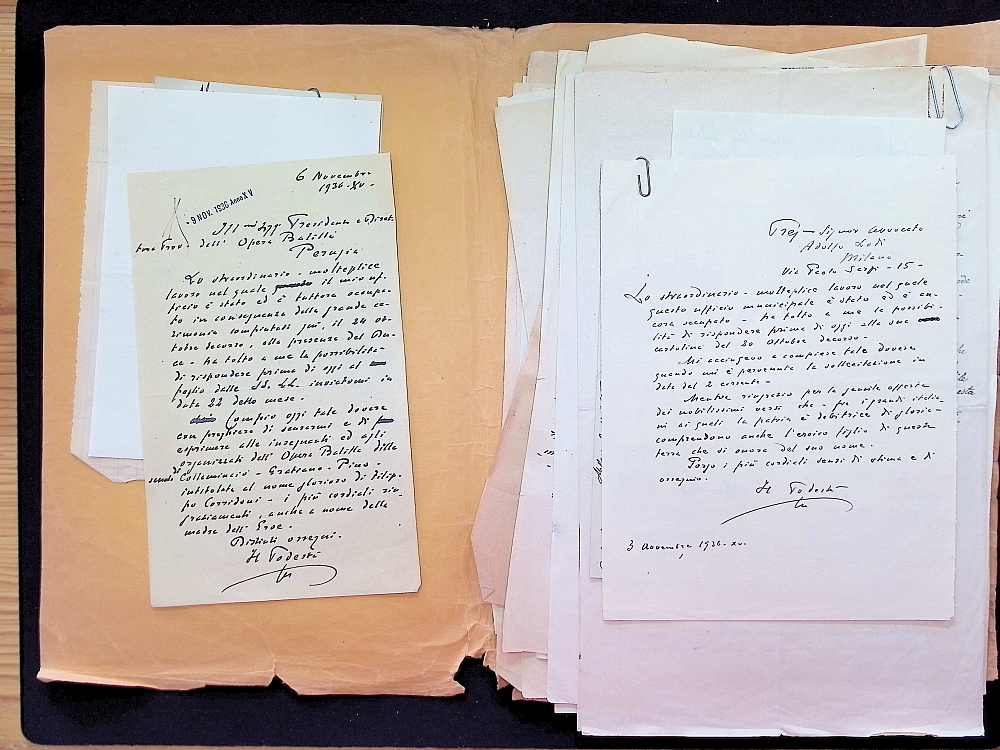 6 Novembre
1936-XV-
- 9 NOV. 1936 Anno XV
Ill mi Sigg Presidente e Diret-
tore Prov. dell' Opera Balilla
Perugia
Lo straordinario - molteplice
lavoro nel quale il mio uf-
ficio è stato ed è tuttora occupa-
to in conseguenza della grande ce-
rimonia compiutasi qui, il 24 ot-
tobre decorso, alla presenza del Du-
ce - ha tolto a me la possibilità
di rispondere prima di oggi al
foglio delle SS. LL. inviatomi in
data 22 detto mese.
Compio oggi tale dovere
con preghiera di scusarmi e di
esprimere alle insegnanti ed agli
organizzati dell' Opera Balilla delle
scuole Collemincio - Grabiano - Pino -
intitolate al nome glorioso di Filip-
po Corridoni - i più cordiali rin-
graziamenti, anche a nome della
madre dell' Eroe.
Distinti ossequi.
Il Podestà
Preg mo Signor Avvocato
Adolfo
Milano
Via Paolo Sarpi - 15 -
Lo straordinario - molteplice lavoro nel quale
questo ufficio municipale è stato ed è an-
cora occupato - ha tolto a me la possibi-
lità di rispondere prima di oggi alla sua
cartolina del 20 Ottobre decorso -
Mi accingevo a compiere tale dovere
quando mi è pervenuta la sollecitazione in
data del 2 corrente -
Mentre ringrazio per la gentile offerta
dei nobilissimi versi che - fra i grandi italia-
ni ai quali la patria è debitrice di gloria -
comprendono anche l'eroico figlio di questa
terra che si onora del suo nome.
Porgo i più cordiali sensi di stima e di
ossequio.
Il Podestà
3 Novembre 1936-XV.